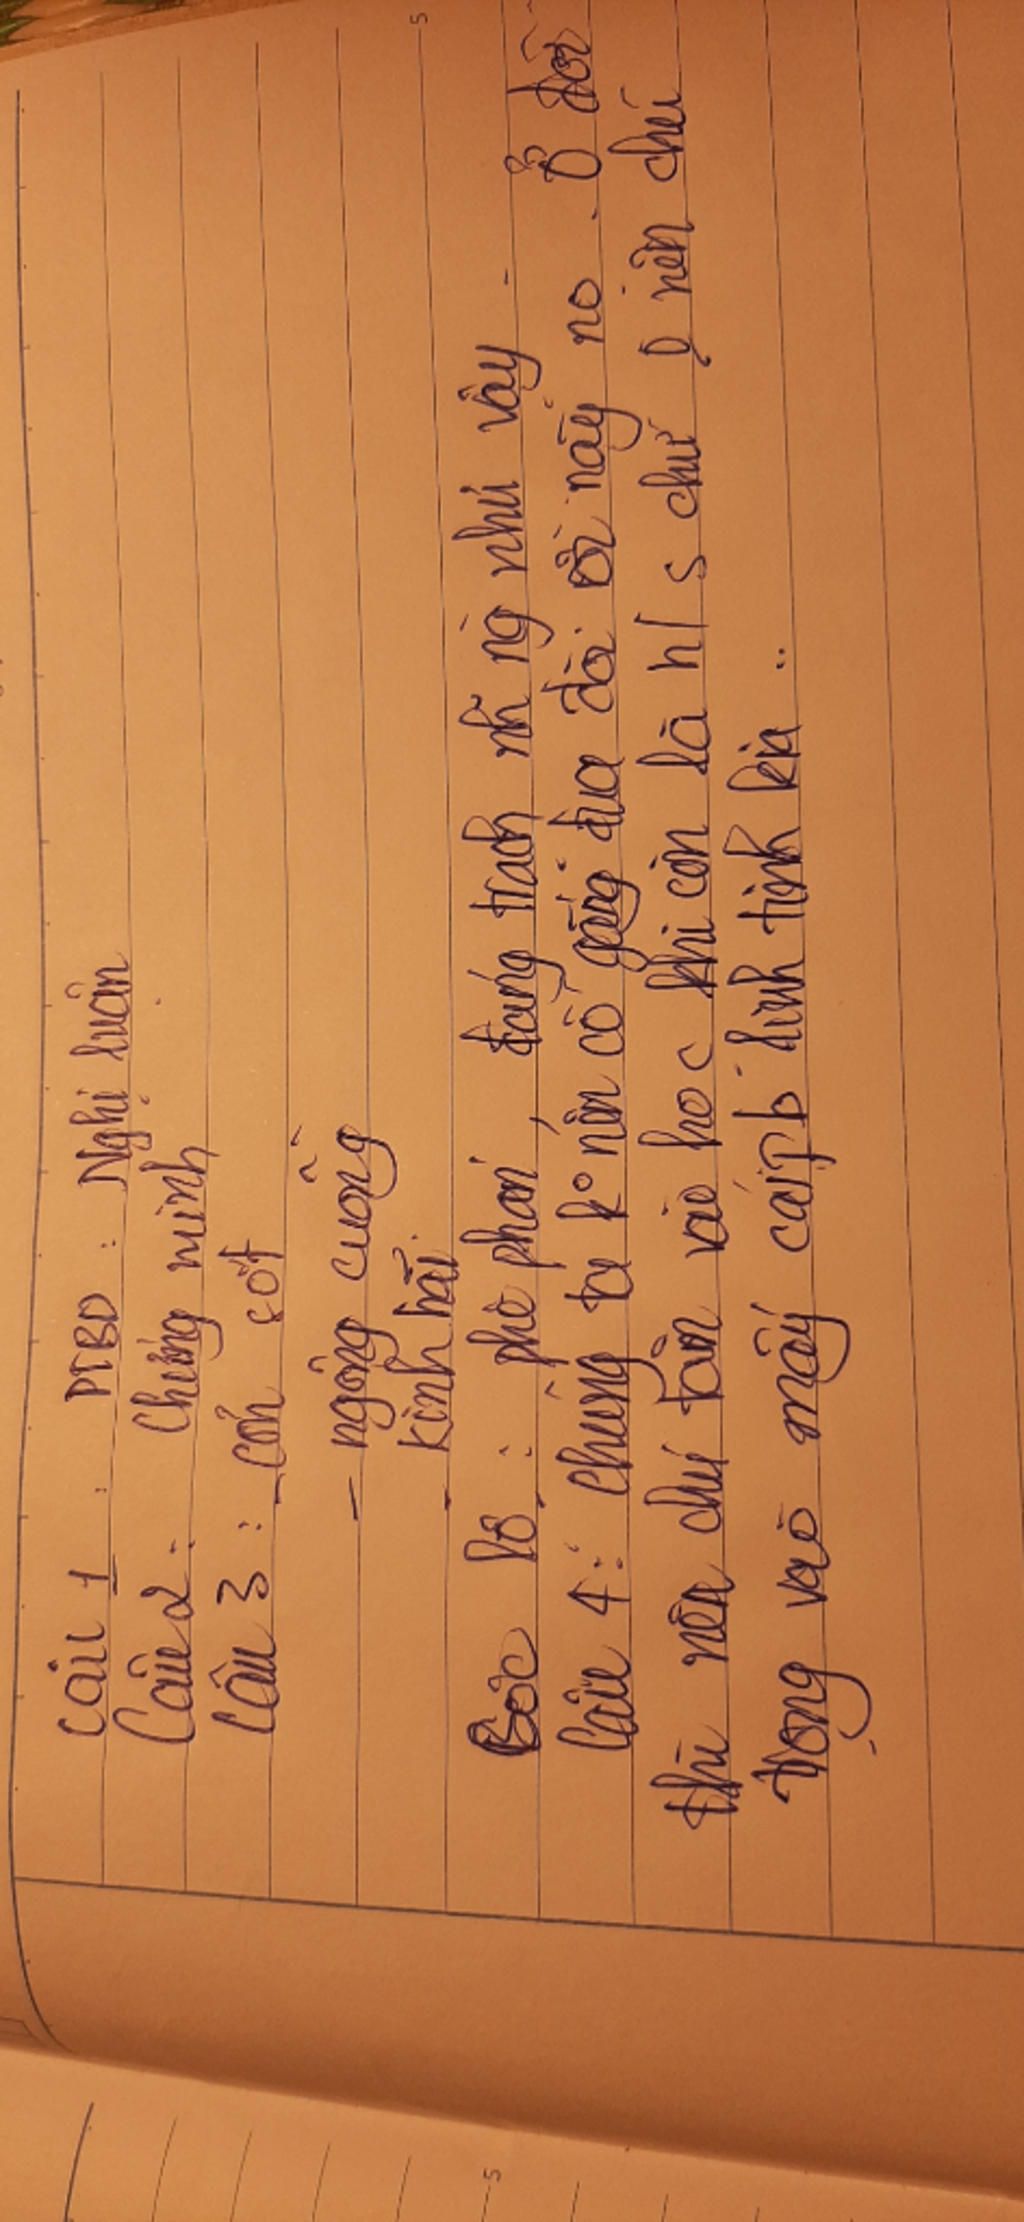 Câu 1 : PTBĐ : Nghị luận
Câu 2 : Chứng minh
Câu 3 : - cơn sốt
- ngông cuồng
- kinh hãi
Bộc lộ : phê phán, đáng trách nh ng như vậy -
Câu 4 : chúng ta ko nên cố gắng đua đòi này nọ. Ở đời
thì nên chú tâm vào học khi còn là h/s chứ ko nên chú
trọng vào mấy cái linh tinh kia..
5
5